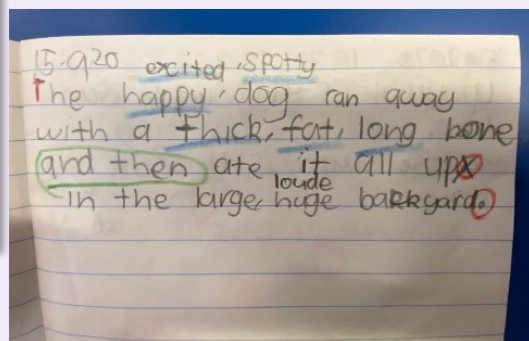 15.9.20 excited, spotty
The happy, dog ran away
with a thick, fat, long bone
and then ate it all up
loude
in the large, huge backyard.